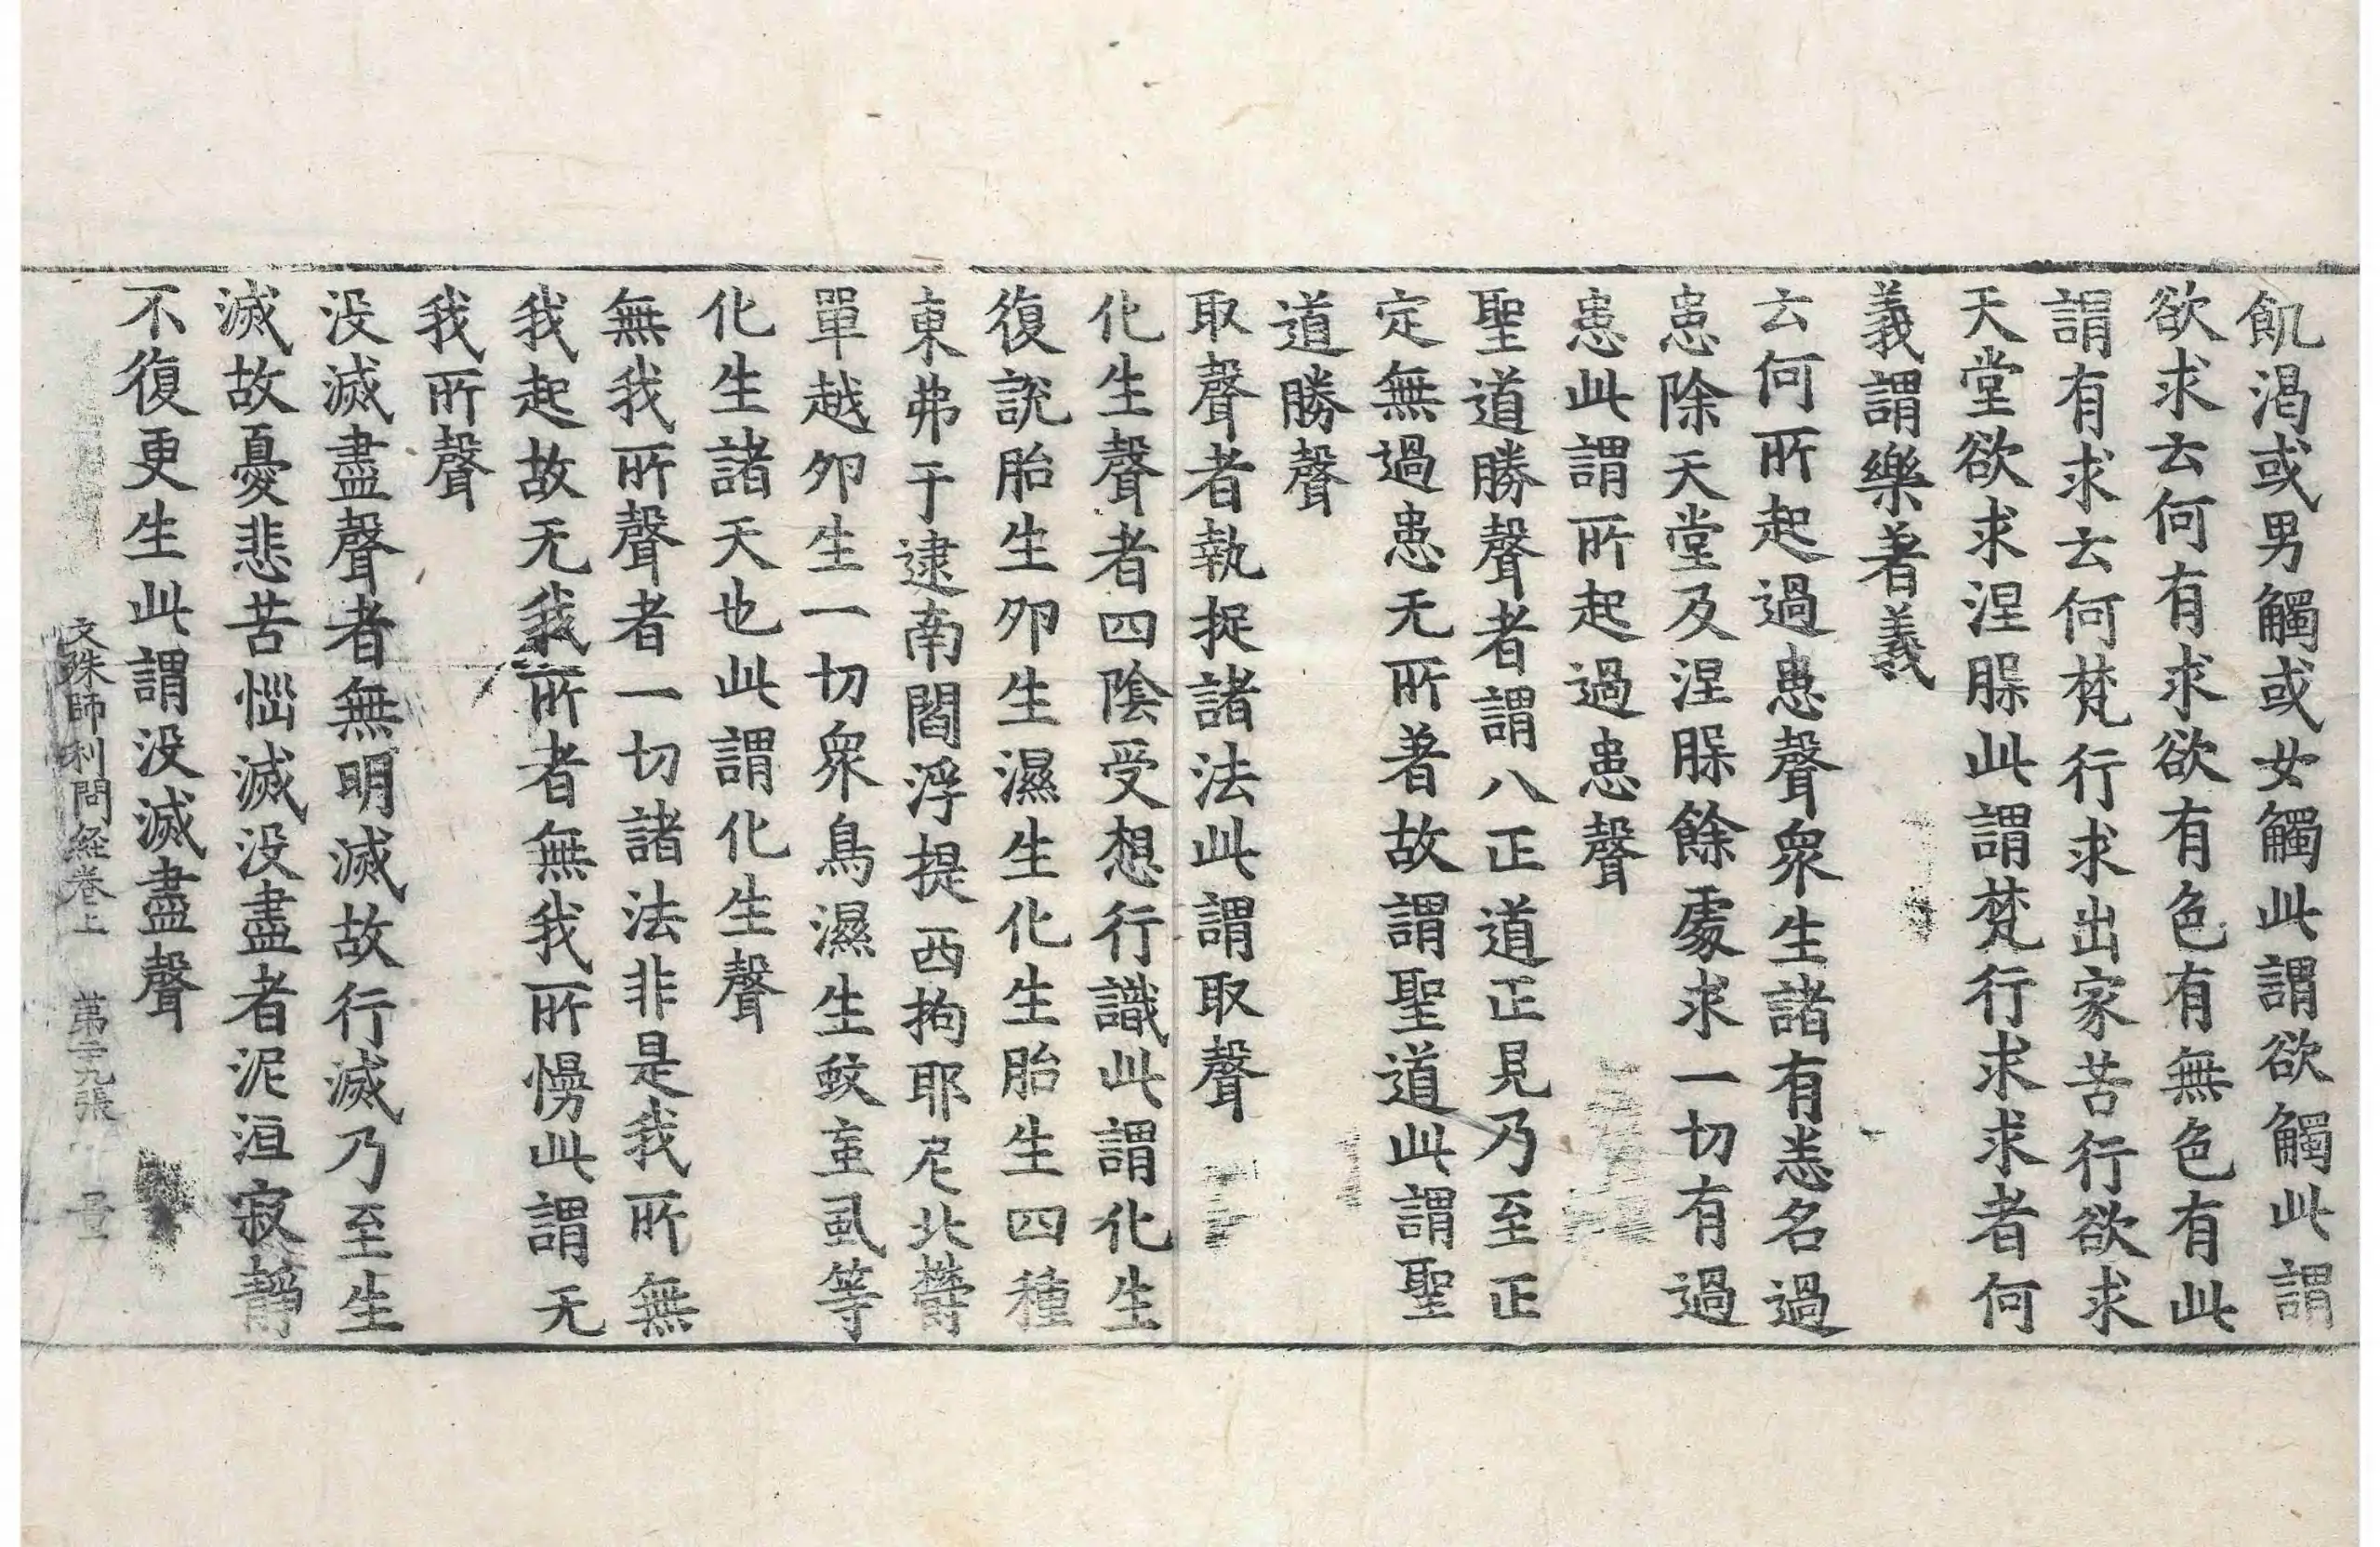 飢渴或男觸或女觸此謂欲觸此謂
欲求云何有求欲有色有無色有此
謂有求云何梵行求出家苦行欲求
天堂欲求涅槃此謂梵行求求者何
義謂樂著義
云何所起過患聲衆生諸有恙名過
患除天堂及涅槃餘處求一切有過
患此謂所起過患聲
聖道勝聲者謂八正道正見乃至正
定無過患无所著故謂聖道此謂聖
道勝聲
取聲者執捉諸法此謂取聲
化生聲者四陰受想行識此謂化生
復說胎生卵生濕生化生胎生四種
東弗于逮南閻浮提西拘耶尼北欝
單越卵生一切衆鳥濕生蚊䖟虱等
化生諸天也此謂化生聲
無我所聲者一切諸法非是我所無
我起故无我所者無我所慢此謂无
我所聲
没滅盡聲者無明滅故行滅乃至生
滅故憂悲苦惱滅没盡者泥洹寂靜
不復更生此謂没滅盡聲
文殊師利問経卷上 苐二九張 量